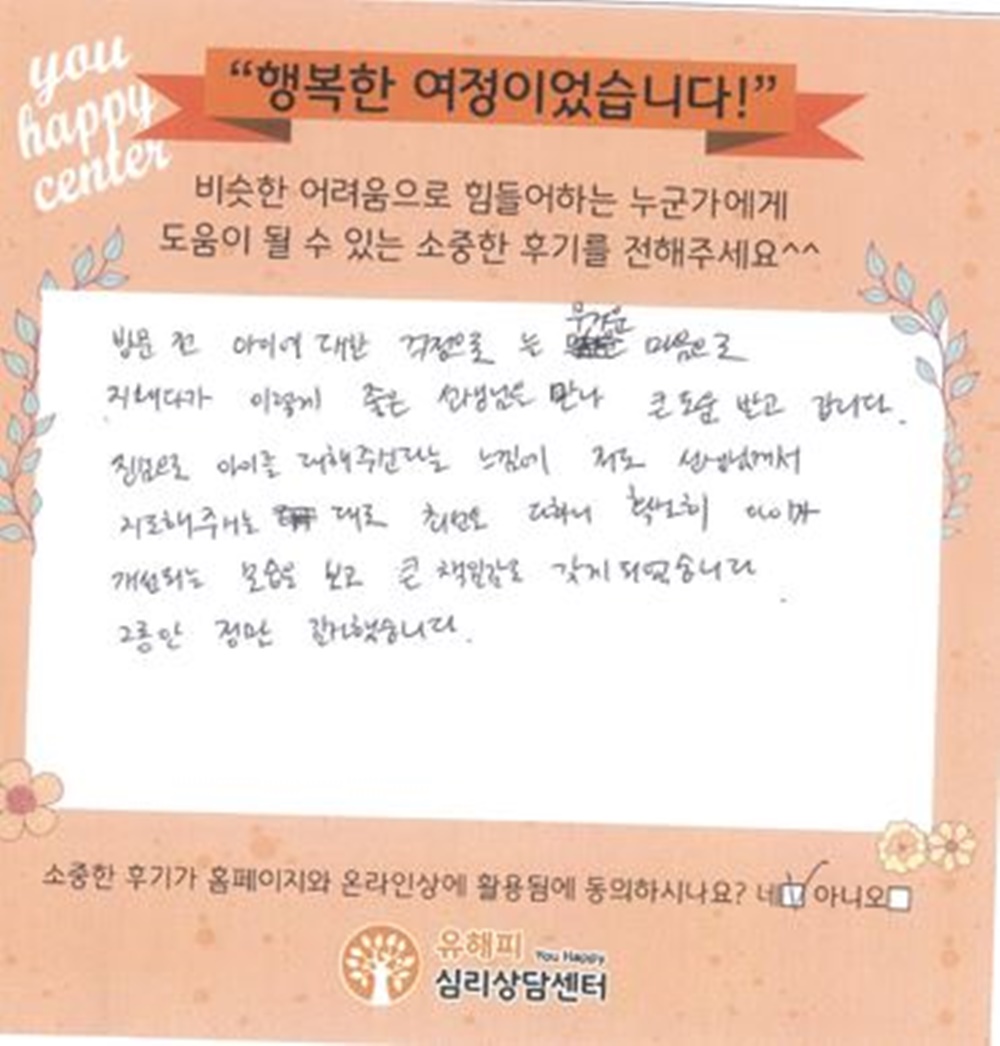 you
happy
center
“행복한 여정이었습니다!”
비슷한 어려움으로 힘들어하는 누군가에게
도움이 될 수 있는 소중한 후기를 전해주세요^^
방문 전 아이에 대한 걱정으로 늘 무거운 마음으로
지내다가 이렇게 좋은 선생님을 만나 큰 도움 받고 갑니다.
진심으로 아이를 대해주신다는 느낌에 저도 선생님께서
지도해주시는 대로 최선을 다하니 확실히 아이가
개선되는 모습을 보고 큰 책임감을 갖게 되었습니다.
그동안 정말 감사했습니다.
소중한 후기가 홈페이지와 온라인상에 활용됨에 동의하시나요? 네 아니오
유해피 You Happy
심리상담센터